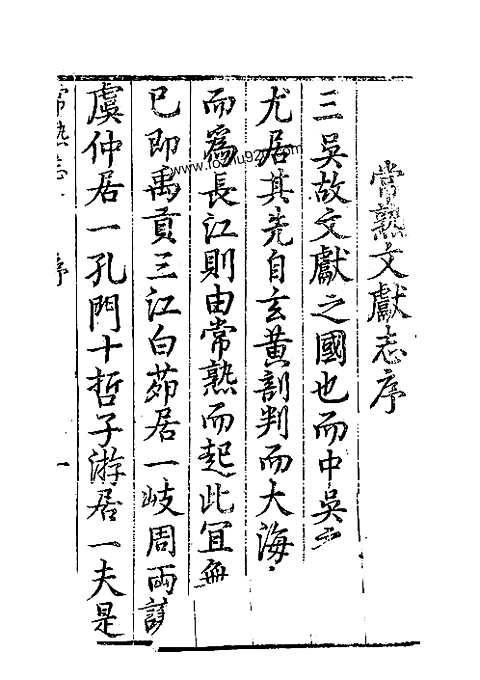 常熟文獻志序
三吳故文獻之國也而中吳
尤居其先自玄黃剖判而大海
而爲長江則由常熟而起此宜無
已即禹貢三江白茆居一岐周兩
虞仲居一孔門十哲子游居一夫是
常熟志 序 一